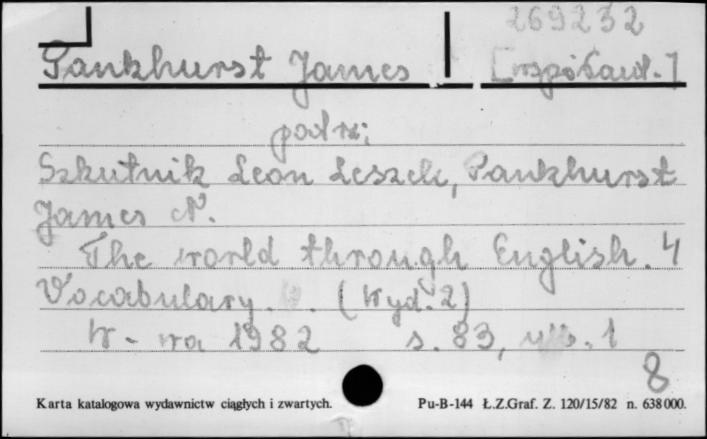 269232
Pankhurst James [współaut.]
patrz:
Szkutnik Leon Leszek, Pankhurst
James N.
The world through English. 4
Vocabulary. . (Wyd. 2)
W-wa 1982 s. 83, . 1
8
Karta katalogowa wydawnictw ciągłych i zwartych. Pu-B-144 Ł.Z.Graf. Z. 120/15/82 n. 638000.